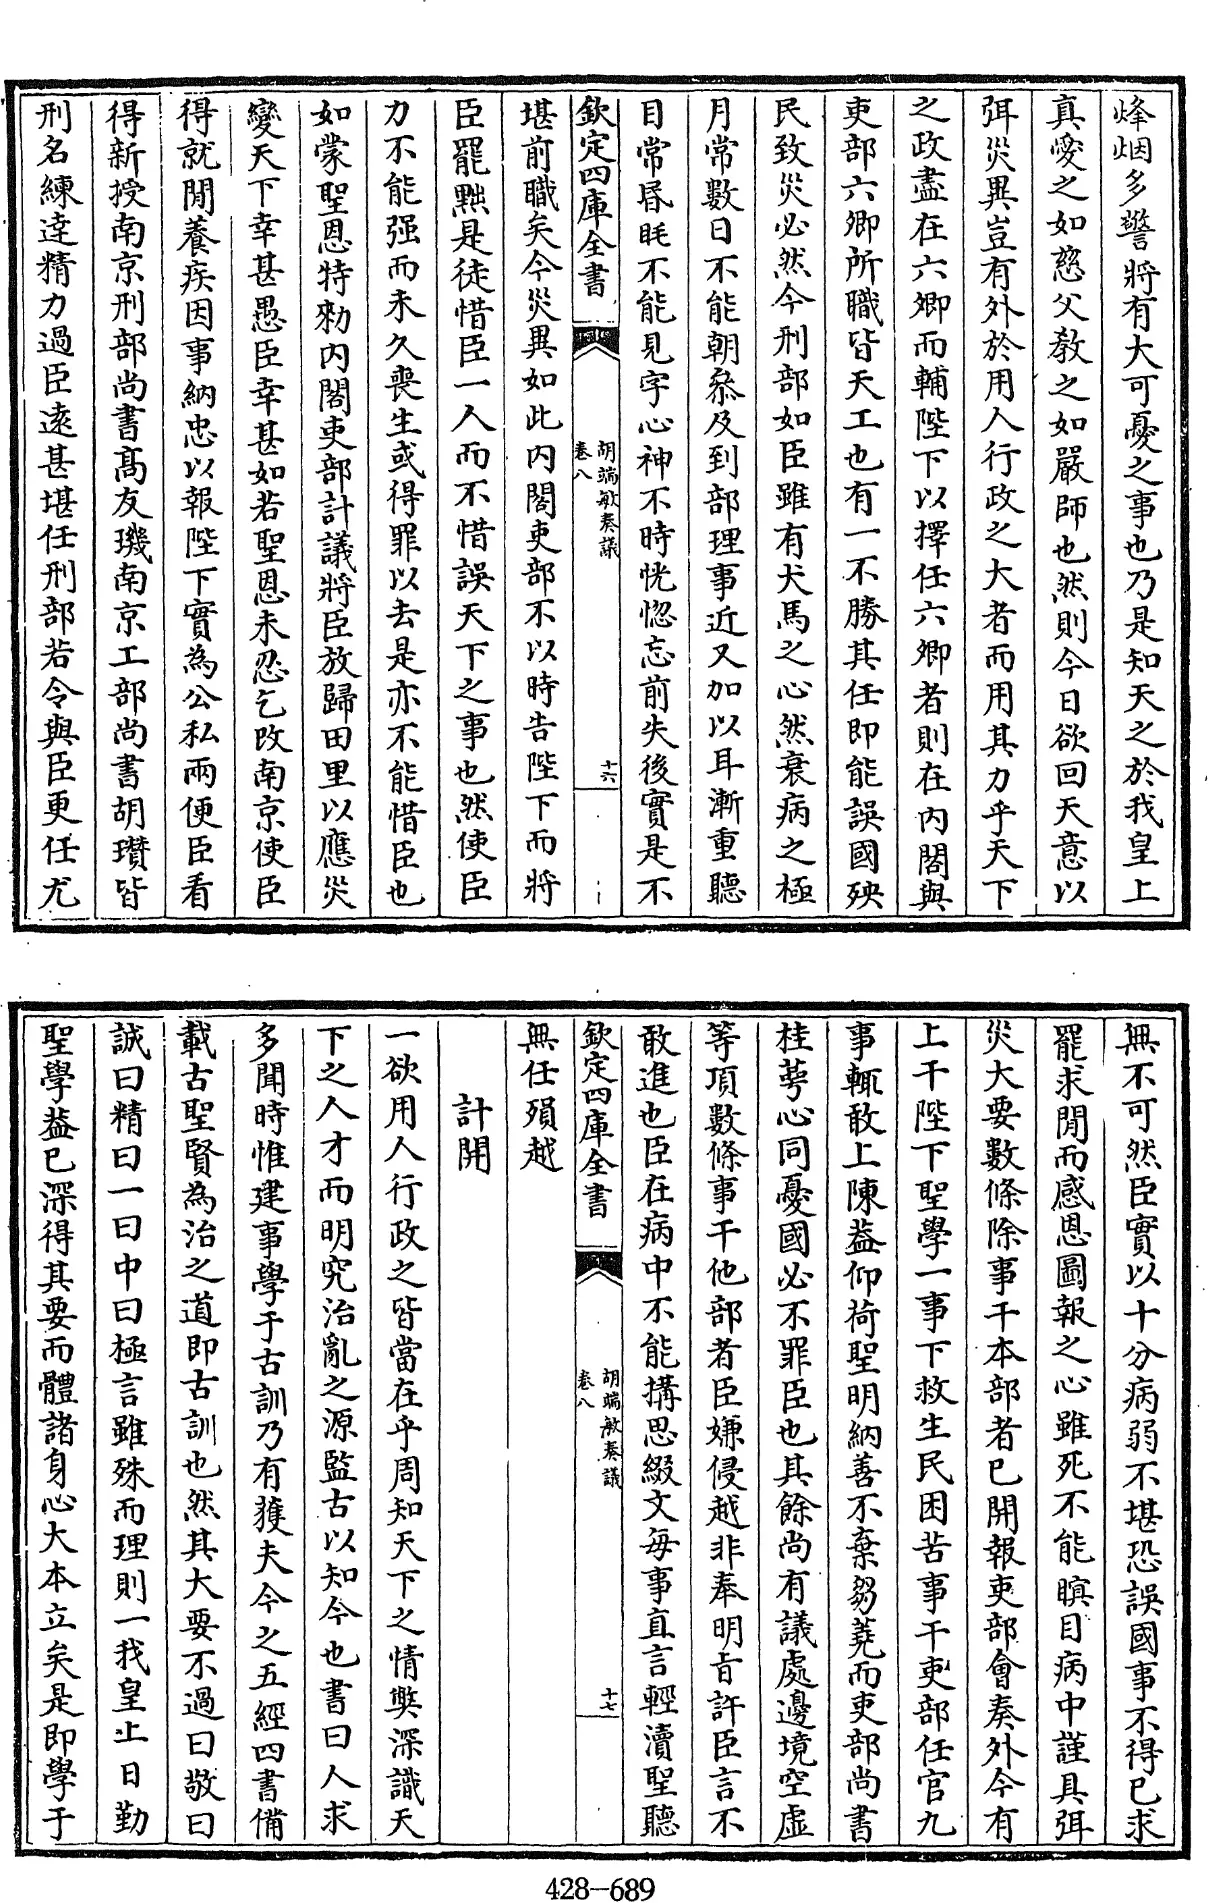 烽烟多警將有大可憂之事也乃是知天之於我皇上
真愛之如慈父教之如嚴師也然則今日欲回天意以
弭災異豈有外於用人行政之大者而用其力乎天下
之政盡在六卿而輔陛下以擇任六卿者則在内閣與
吏部六卿所職皆天工也有一不勝其任即能誤國殃
民致災必然今刑部如臣雖有犬馬之心然衰病之極
月常數日不能朝叅及到部理事近又加以耳漸重聽
目常昏眊不能見字心神不時恍惚忘前失後實是不
欽定四庫全書
胡端敏奏議
卷八
十六
堪前職矣今災異如此内閣吏部不以時告陛下而將
臣罷黜是徒惜臣一人而不惜誤天下之事也然使臣
力不能强而未久喪生或得罪以去是亦不能惜臣也
如蒙聖恩特勑内閣吏部計議將臣放歸田里以應災
變天下幸甚愚臣幸甚如若聖恩未忍乞改南京使臣
得就閒養疾因事納忠以報陛下實為公私兩便臣看
得新授南京刑部尚書髙友璣南京工部尚書胡瓚皆
刑名練達精力過臣逺甚堪任刑部若令與臣更任尤
無不可然臣實以十分病弱不堪恐誤國事不得已求
罷求閒而感恩圖報之心雖死不能瞑目病中謹具弭
災大要數條除事干本部者已開報吏部會奏外今有
上干陛下聖學一事下救生民困苦事干吏部任官九
事輒敢上陳葢仰荷聖明納善不棄芻蕘而吏部尚書
桂萼心同憂國必不罪臣也其餘尚有議處邊境空虛
等項數條事干他部者臣嫌侵越非奉明旨許臣言不
敢進也臣在病中不能搆思綴文每事直言輕瀆聖聽
欽定四庫全書
胡端敏奏議
卷八
十七
無任殞越
計開
一欲用人行政之皆當在乎周知天下之情弊深識天
下之人才而明究治亂之源監古以知今也書曰人求
多聞時惟建事學于古訓乃有獲夫今之五經四書備
載古聖賢為治之道即古訓也然其大要不過曰敬曰
誠曰精曰一曰中曰極言雖殊而理則一我皇上日勤
聖學葢已深得其要而體諸身心大本立矣是即學于
428-689